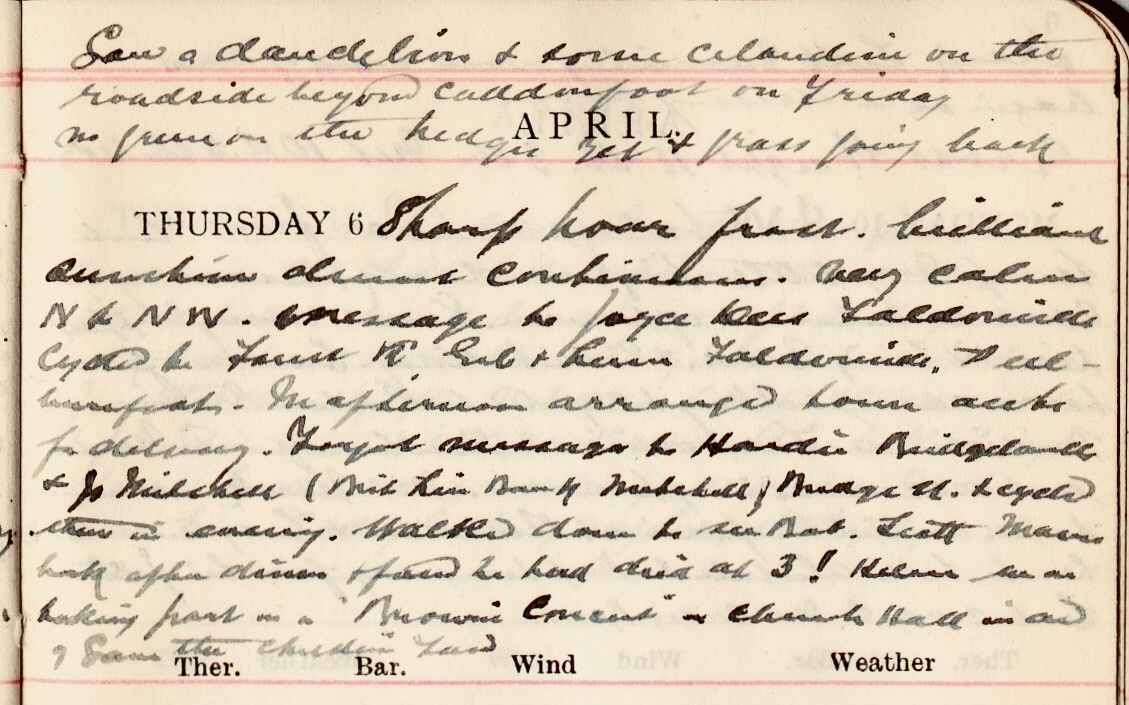 Saw a dandelion & some celandine on the
roadside beyond Caddonfoot on Friday
no green on the hedges yet & grass going back
APRIL.
THURSDAY 6 Sharp hoar frost. brilliant
sunshine almost continuous. Very calm
N to NW. message to Joyce Kerr Faldonside
Cycled to Forest & Faldonside, Peel
burnfoot. In afternoon arranged town
for delivery. Forgot message to Hardie Bridgelands
& Jo Mitchell (Brit Lin Bank Mitchell) Bridge St. & cycled
there in evening. Walked down to see Rob. Scott
back after dinner & found he had died at 3! Helen
taking part in a "Brownie Concert" in Church Hall in aid
of Save the Children Fund
Ther. Bar. Wind Weather